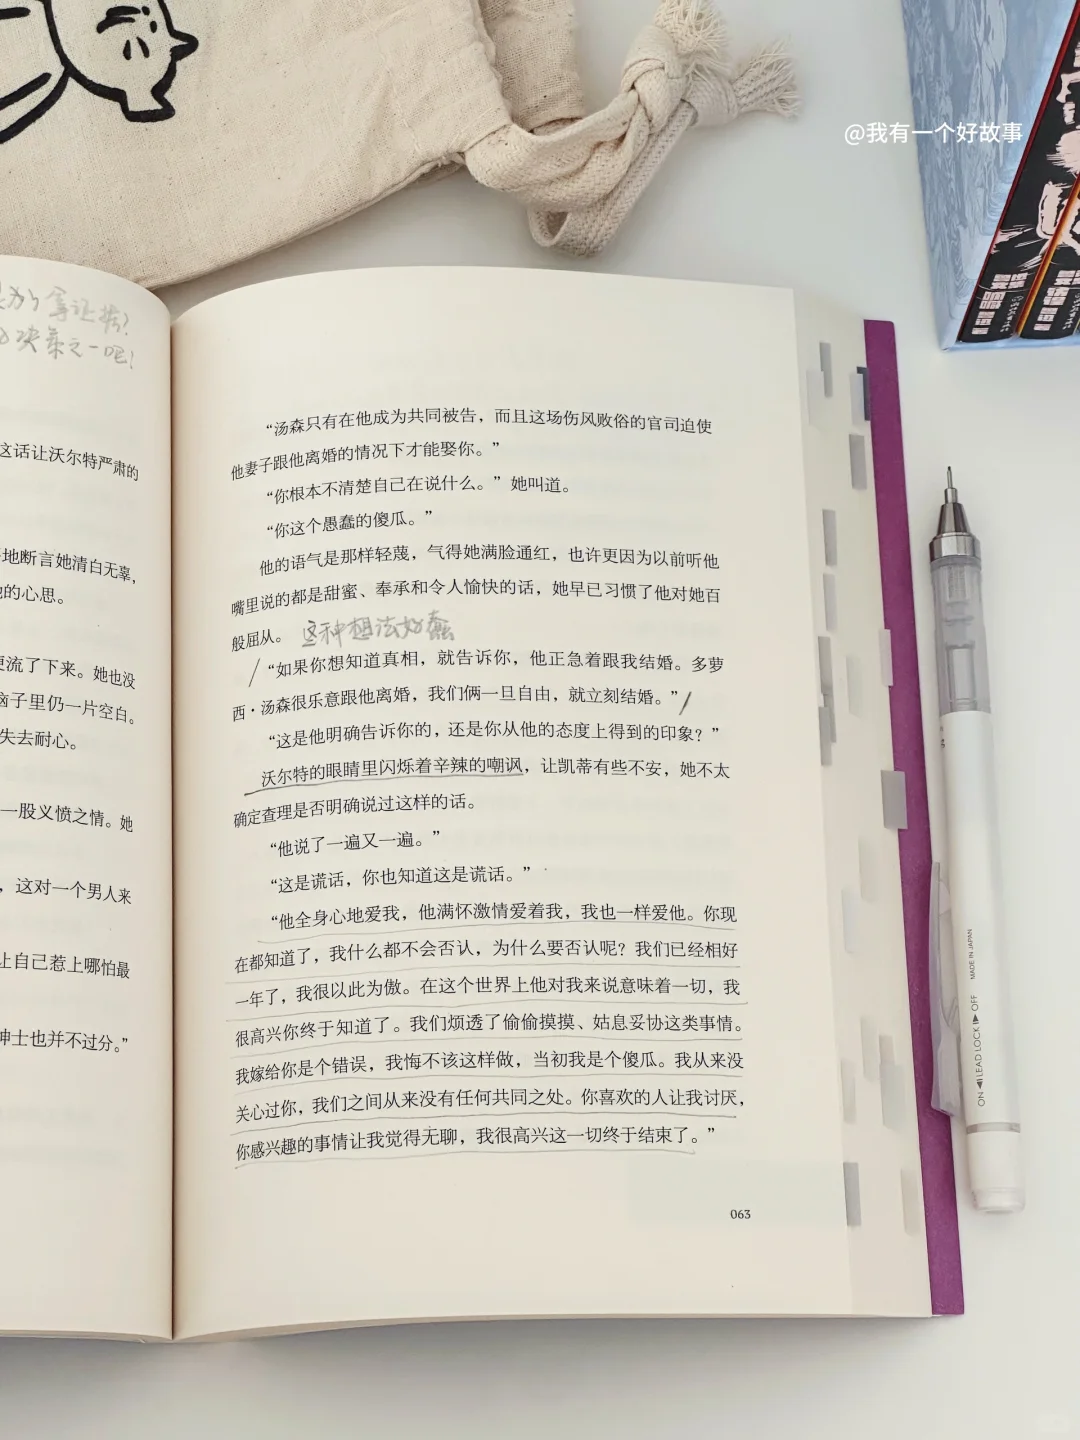 @我有一个好故事
决策之一呢!
这话让沃尔特严肃的
地断言她清白无辜,
的心思。
更流了下来。她也没
脑子里仍一片空白。
失去耐心。
一股义愤之情。她
,这对一个男人来
让自己惹上哪怕最
绅士也并不过分。”
“汤森只有在他成为共同被告,而且这场伤风败俗的官司迫使
他妻子跟他离婚的情况下才能娶你。”
“你根本不清楚自己在说什么。”她叫道。
“你这个愚蠢的傻瓜。”
他的语气是那样轻蔑,气得她满脸通红,也许更因为以前听他
嘴里说的都是甜蜜、奉承和令人愉快的话,她早已习惯了他对她百
般屈从。 这种想法好蠢
“如果你想知道真相,就告诉你,他正急着跟我结婚。多萝
西·汤森很乐意跟他离婚,我们俩一旦自由,就立刻结婚。”
“这是他明确告诉你的,还是你从他的态度上得到的印象?”
沃尔特的眼睛里闪烁着辛辣的嘲讽,让凯蒂有些不安,她不太
确定查理是否明确说过这样的话。
“他说了一遍又一遍。”
“这是谎话,你也知道这是谎话。”
“他全身心地爱我,他满怀激情爱着我,我也一样爱他。你现
在都知道了,我什么都不会否认,为什么要否认呢?我们已经相好
一年了,我很以此为傲。在这个世界上他对我来说意味着一切,我
很高兴你终于知道了。我们烦透了偷偷摸摸、姑息妥协这类事情。
我嫁给你是个错误,我悔不该这样做,当初我是个傻瓜。我从来没
关心过你,我们之间从来没有任何共同之处。你喜欢的人让我讨厌,
你感兴趣的事情让我觉得无聊,我很高兴这一切终于结束了。”
063
ON ◀LEAD LOCK▶ OFF MADE IN JAPAN